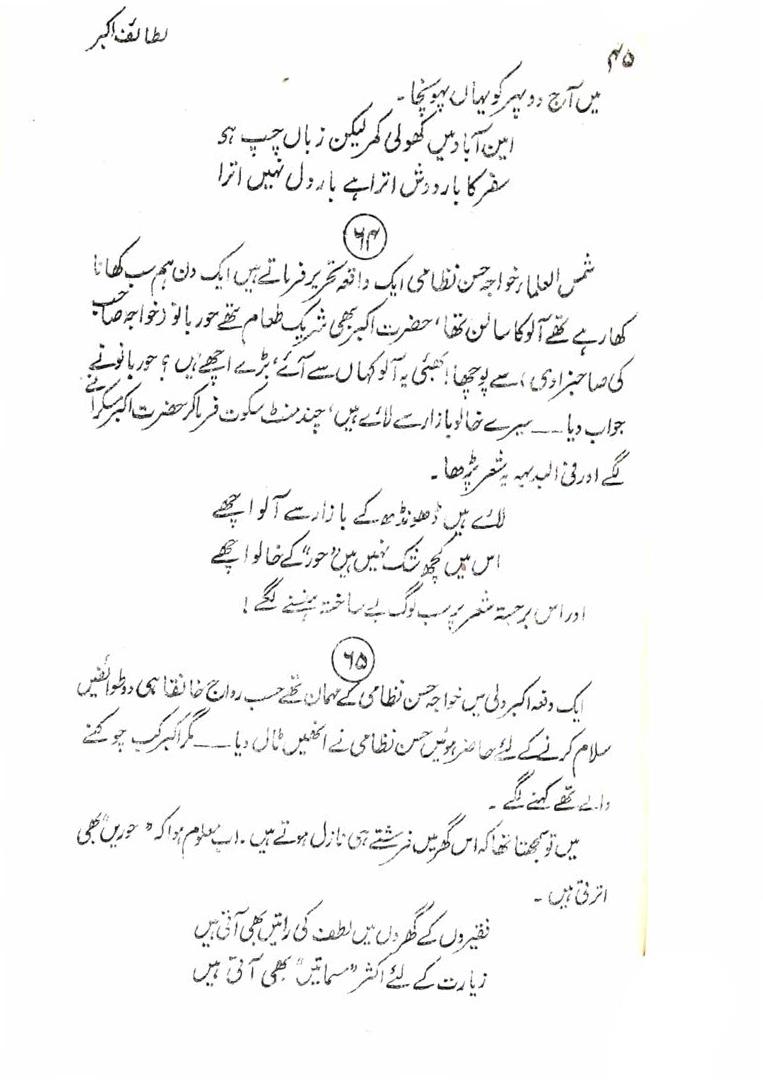 لطائف اکبر
۴۵
میں آج دوپہر کو یہاں پہونچا۔
امین آباد میں کھولی کمر لیکن زباں چپ ہی
سفر کا بار دوش اترا ہے بار دل نہیں اترا
۶۴
شمس العلماء خواجہ حسن نظامی ایک واقعہ تحریر فرماتے ہیں ایک دن ہم سب کھانا
کھا رہے تھے آلو کا سالن تھا، حضرت اکبر بھی شریک طعام تھے حور بانو (خواجہ صاحب
کی صاحبزادی) سے پوچھا! بھئی یہ آلو کہاں سے آئے، بڑے اچھے ہیں؟ حور بانو نے
جواب دیا ــــ میرے خالو بازار سے لائے ہیں، چند منٹ سکوت فرما کر حضرت اکبر مسکرانے
لگے اور فی البدیہہ یہ شعر پڑھا۔
لائے ہیں ڈھونڈھ کے بازار سے آلو اچھے
اس میں کچھ شک نہیں ہیں "حور" کے خالو اچھے
اور اس برجستہ شعر پر سب لوگ بے ساختہ ہنسنے لگے!
۶۵
ایک دفعہ اکبر دلی میں خواجہ حسن نظامی کے مہمان تھے حسب رواج خانقاہی دو طوائفیں
سلام کرنے کے لئے حاضر ہوئیں حسن نظامی نے انھیں ٹال دیا ــــ مگر اکبر کب چوکنے
والے تھے کہنے لگے۔
میں تو سمجھتا تھا کہ اس گھر میں فرشتے ہی نازل ہوتے ہیں۔ اب معلوم ہوا کہ "حوریں" بھی
اترتی ہیں۔
فقیروں کے گھروں میں لطف کی راتیں بھی آتی ہیں
زیارت کے لئے اکثر "مسماتیں" بھی آتی ہیں